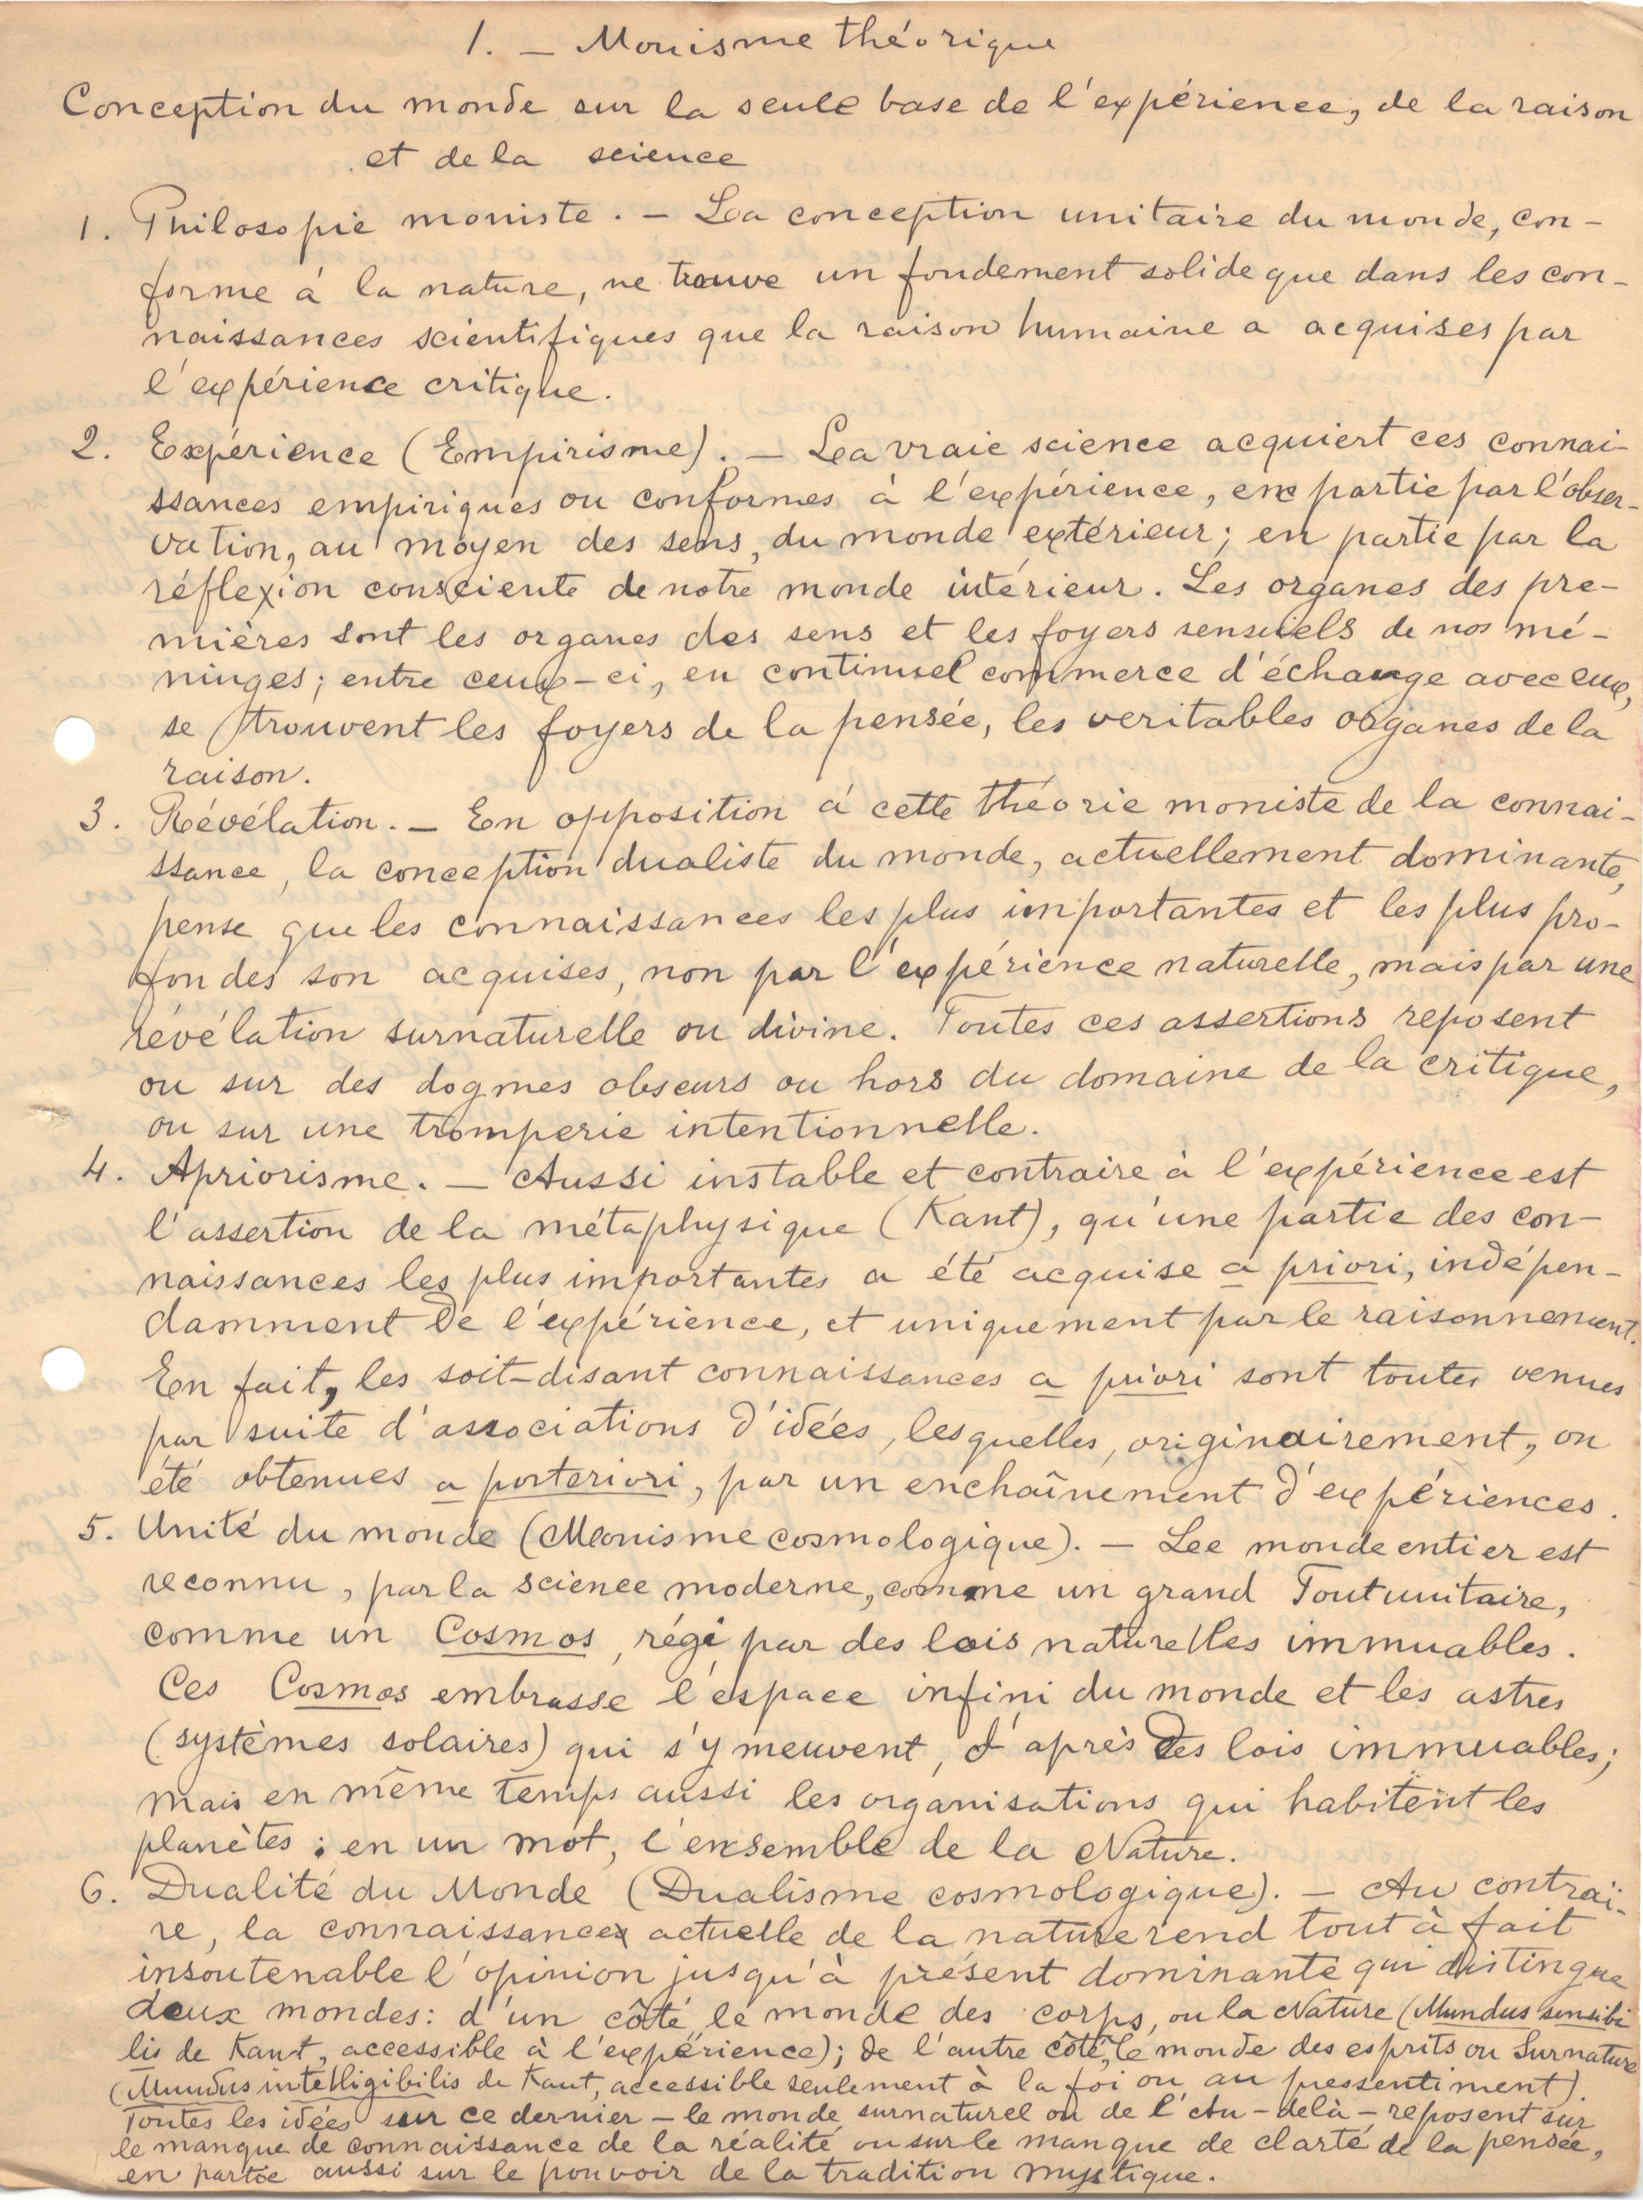 1. — Monisme théorique
Conception du monde sur la seule base de l'expérience, de la raison
et de la science
1. Philosopie moniste. — La conception unitaire du monde, con-
forme à la nature, ne trouve un fondement solide que dans les con-
naissances scientifiques que la raison humaine a acquises par
l'expérience critique.
2. Expérience (Empirisme). — La vraie science acquiert ces connai-
ssances empiriques ou conformes à l'expérience, en partie par l'obser-
vation, au moyen des sens, du monde extérieur; en partie par la
réflexion consciente de notre monde intérieur. Les organes des pre-
mières sont les organes des sens et les foyers sensuels de nos mé-
ninges; entre ceux-ci, en continuel commerce d'échange avec eux,
se trouvent les foyers de la pensée, les veritables organes de la
raison.
3. Révélation. — En opposition à cette théorie moniste de la connai-
ssance, la conception dualiste du monde, actuellement dominante,
pense que les connaissances les plus importantes et les plus pro-
fondes son acquises, non par l'expérience naturelle, mais par une
révélation surnaturelle ou divine. Toutes ces assertions reposent
ou sur des dogmes obscurs ou hors du domaine de la critique,
ou sur une tromperie intentionnelle.
4. Apriorisme. — Aussi instable et contraire à l'expérience est
l'assertion de la métaphysique (Kant), qu'une partie des con-
naissances les plus importantes a été acquise a priori, indépen-
damment de l'expérience, et uniquement par le raisonnement.
En fait, les soit-disant connaissances a priori sont toutes venues
par suite d'associations d'idées, lesquelles, originairement, on
été obtenues a porteriori, par un enchaînement d'expériences.
5. Unité du monde (Monisme cosmologique). — Le monde entier est
reconnu, par la science moderne, comme un grand Tout unitaire,
comme un Cosmos, régi par des lois naturelles immuables.
Ces Cosmos embrasse l'espace infini du monde et les astres
(systèmes solaires) qui s'y meuvent, d'après des lois immuables;
mais en même temps aussi les organisations qui habitent les
planètes; en un mot, l'ensemble de la Nature.
6. Dualité du Monde (Dualisme cosmologique). — Au contrai-
re, la connaissance actuelle de la nature rend tout à fait
insoutenable l'opinion jusqu'à présent dominante qui distingue
deux mondes: d'un côté le monde des corps, ou la Nature (Mundus sensibi
lis de Kant, accessible à l'expérience); de l'autre côté, le monde des esprits ou Surnature
(Mundus intelligibilis de Kant, accessible seulement à la foi ou au pressentiment).
Toutes les idées sur ce dernier — le monde surnaturel ou de l'Au-delà — reposent sur
le manque de connaissance de la réalité ou sur le manque de clarté de la pensée,
en partie aussi sur le pouvoir de la tradition mystique.